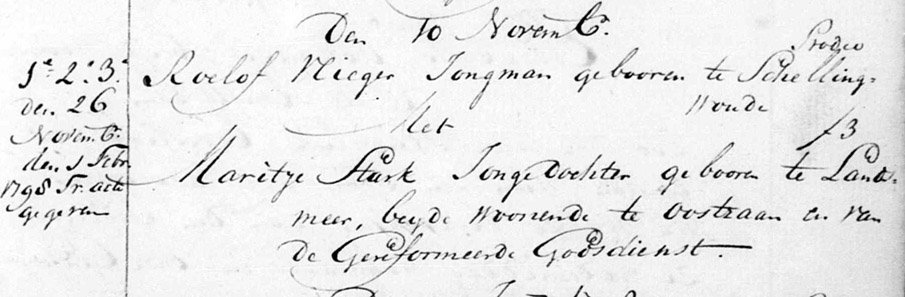 Den 10 Novemb.
Prodeo
1e 2e 3e
den 26
Novemb.
den 1 Febr.
1798 Tr. acte
gegeven
Roelof Nieger Jongman gebooren te Schelling-
woude
Met
f3
Maritje Stark Jongedochter gebooren te Lands-
meer, beyde woonende te oostzaan en van
de Gereformeerde Godsdienst.